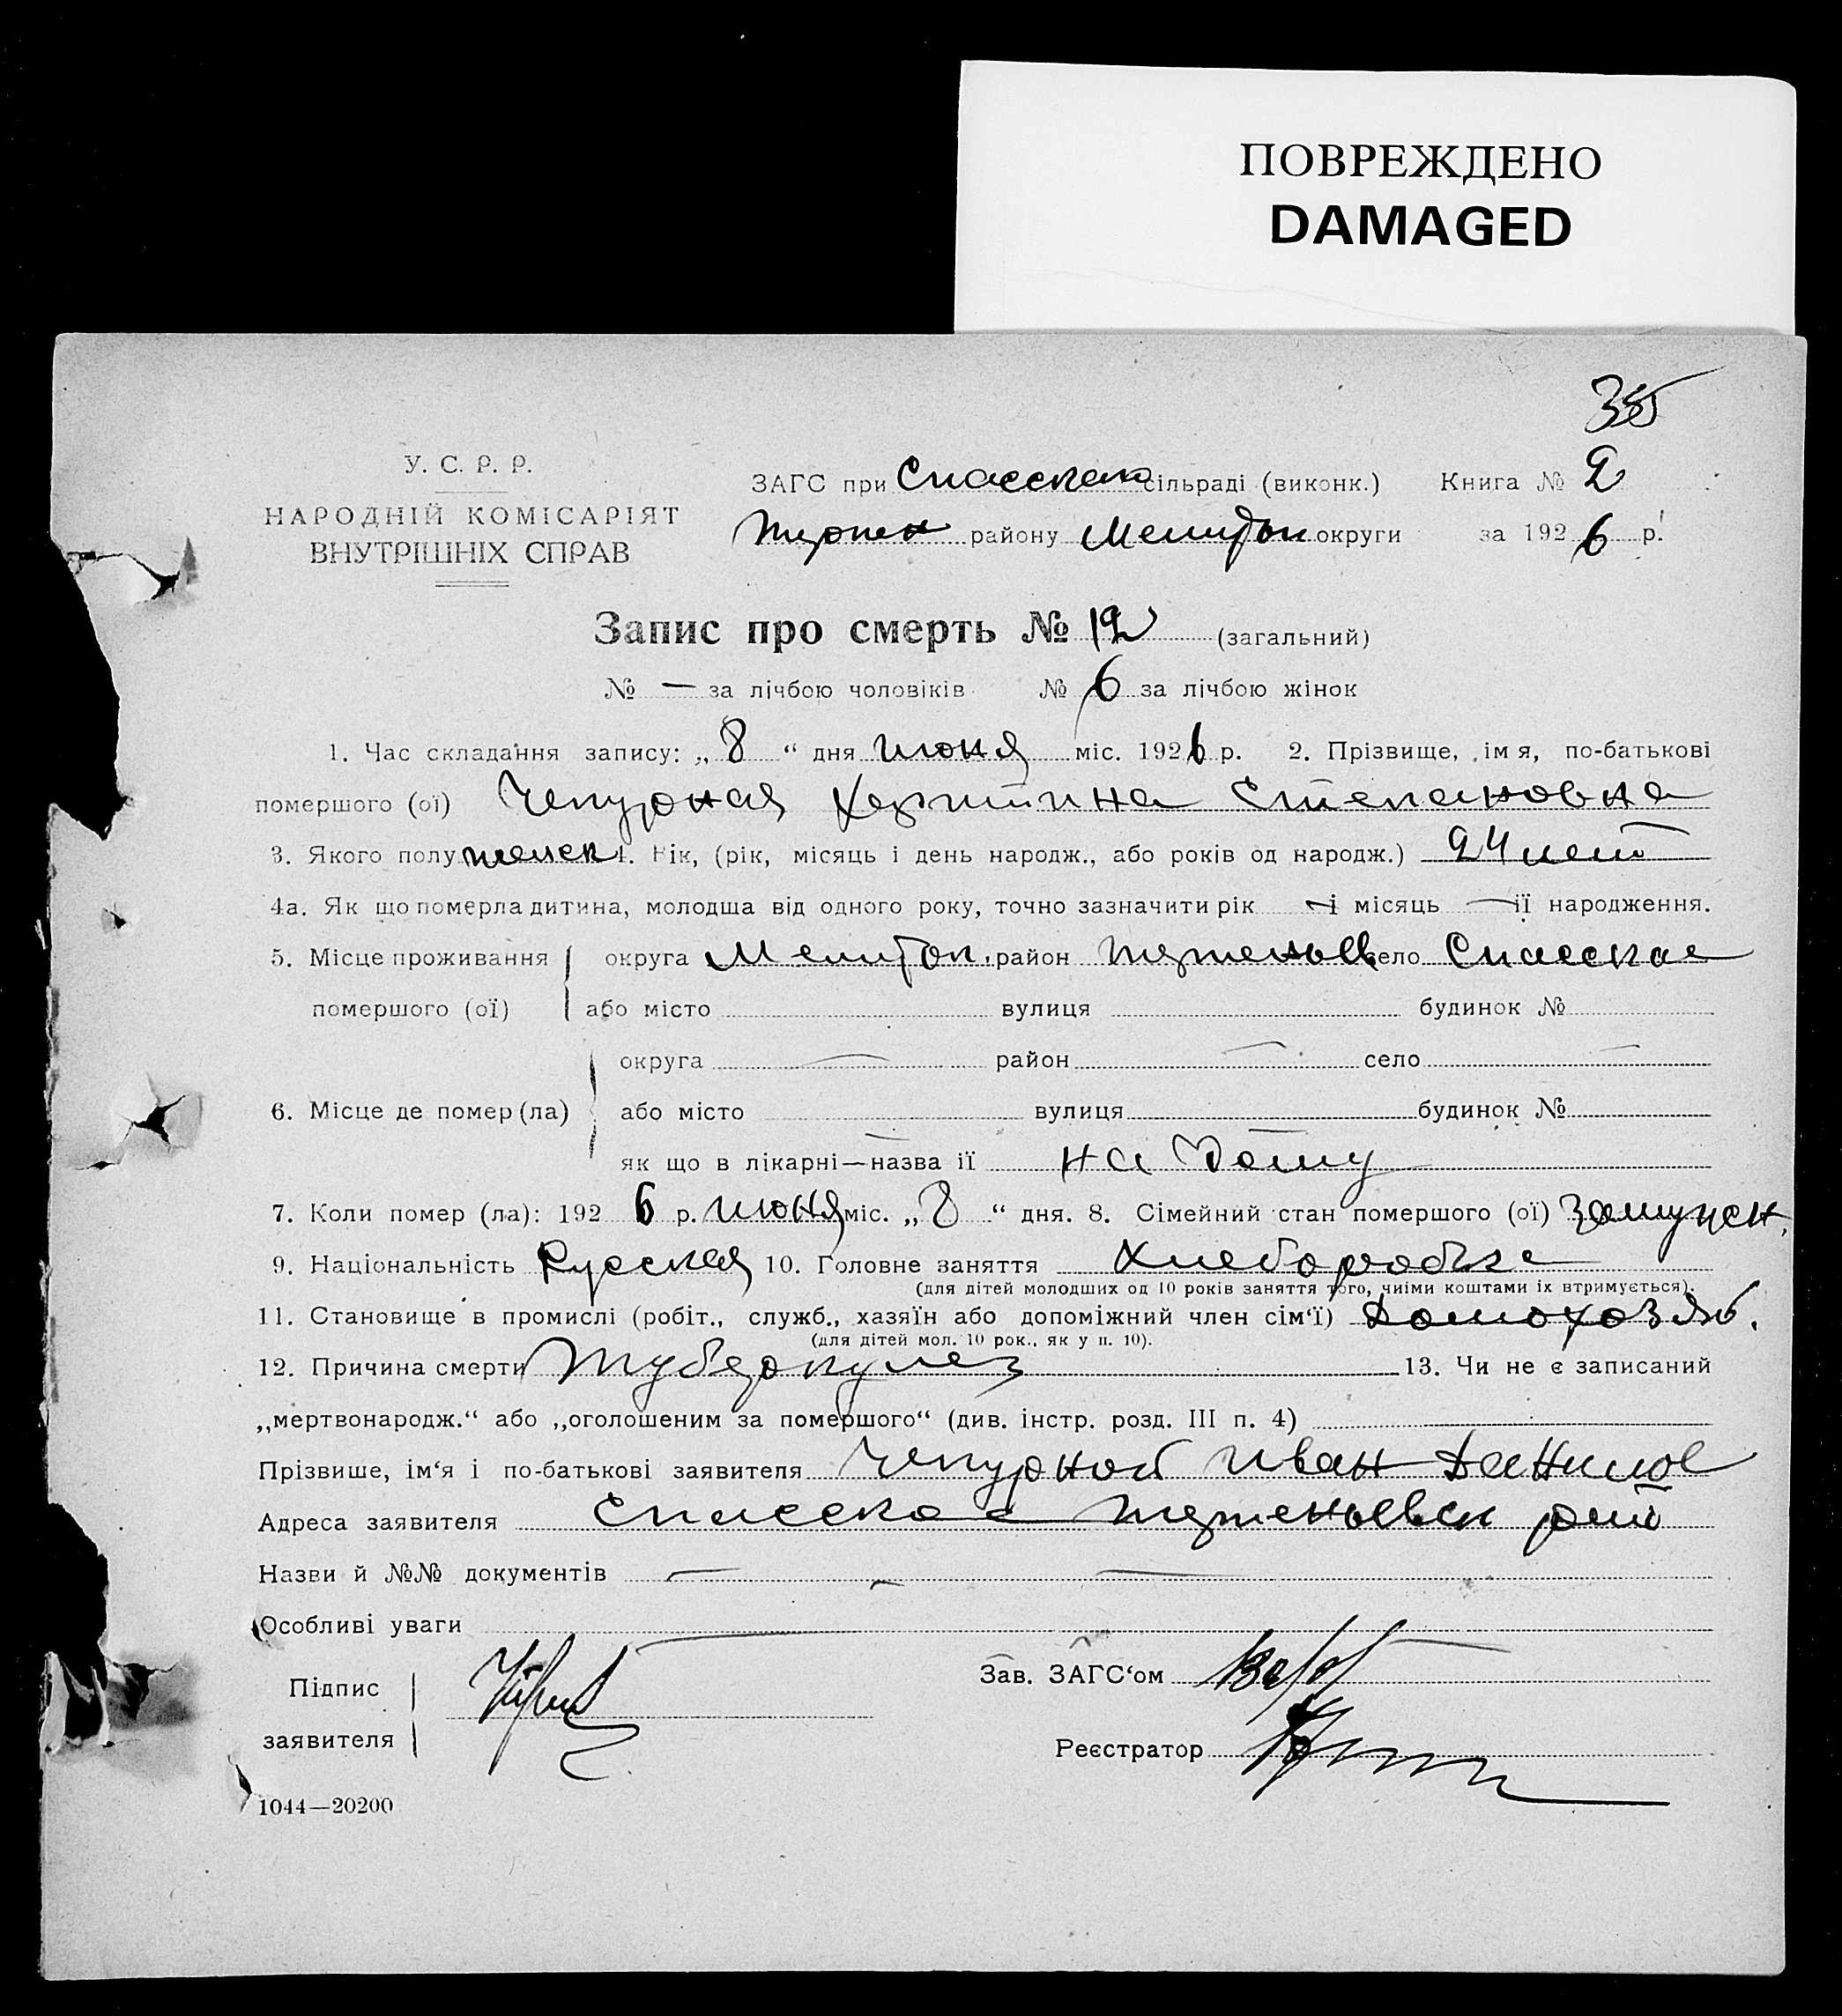 ПОВРЕЖДЕНО
DAMAGED
35
У. С. Р. Р.
НАРОДНІЙ КОМІСАРІЯТ
ВНУТРІШНІХ СПРАВ
ЗАГС при Спасском сільраді (виконк.) Книга № 2
району Мелитоп округи за 1926 р.
Запис про смерть № 12 (загальний)
№ — за лічбою чоловіків № 6 за лічбою жінок
1. Час складання запису: „8“ дня июня міс. 1926 р. 2. Прізвище, імя, по-батькові
помершого (ої) Чепурная Харитина Степановна
3. Якого полу женск 4. Вік, (рік, місяць і день народж., або років од народж.) 24 лет
4а. Як що померла дитина, молодша від одного року, точно зазначити рік — і місяць — її народження.
5. Місце проживання округа Мелитоп. район село Спасское
помершого (ої) або місто вулиця будинок №
округа — район — село —
6. Місце де помер (ла) або місто вулиця будинок №
як що в лікарні—назва її на дому
7. Коли помер (ла): 1926 р. июня міс. „8“ дня. 8. Сімейний стан помершого (ої) замужн.
9. Національність Русская 10. Головне заняття Хлеборобка
(для дітей молодших од 10 років заняття того, чиїми коштами їх втримується).
11. Становище в промислі (робіт., служб., хазяїн або допоміжний член сім‘ї) Домохозяб.
(для дітей мол. 10 рок., як у п. 10).
12. Причина смерти Туберкулез 13. Чи не є записаний
„мертвонародж.“ або „оголошеним за помершого“ (див. інстр. розд. III п. 4)
Прізвише, ім‘я і по-батькові заявителя Чепурной Иван Данилов
Адреса заявителя Спасское
Назви й №№ документів — — —
Особливі уваги —
Підпис
заявителя
Зав. ЗАГС‘ом
Реєстратор
1044—20200